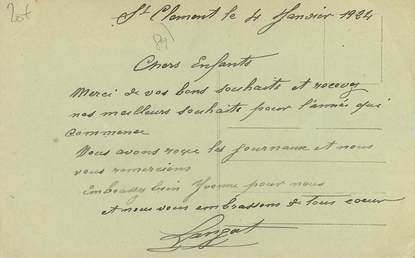 St Clement le 4 Janvier 1924
Chers Enfants
Merci de vos bons souhaits et recevez
nos meilleurs souhaits pour l'année qui
commence
Nous avons reçu les journaux et nous
vous remercions
Embrassez bien Yvonne pour nous
et nous vous embrassons de tout coeur